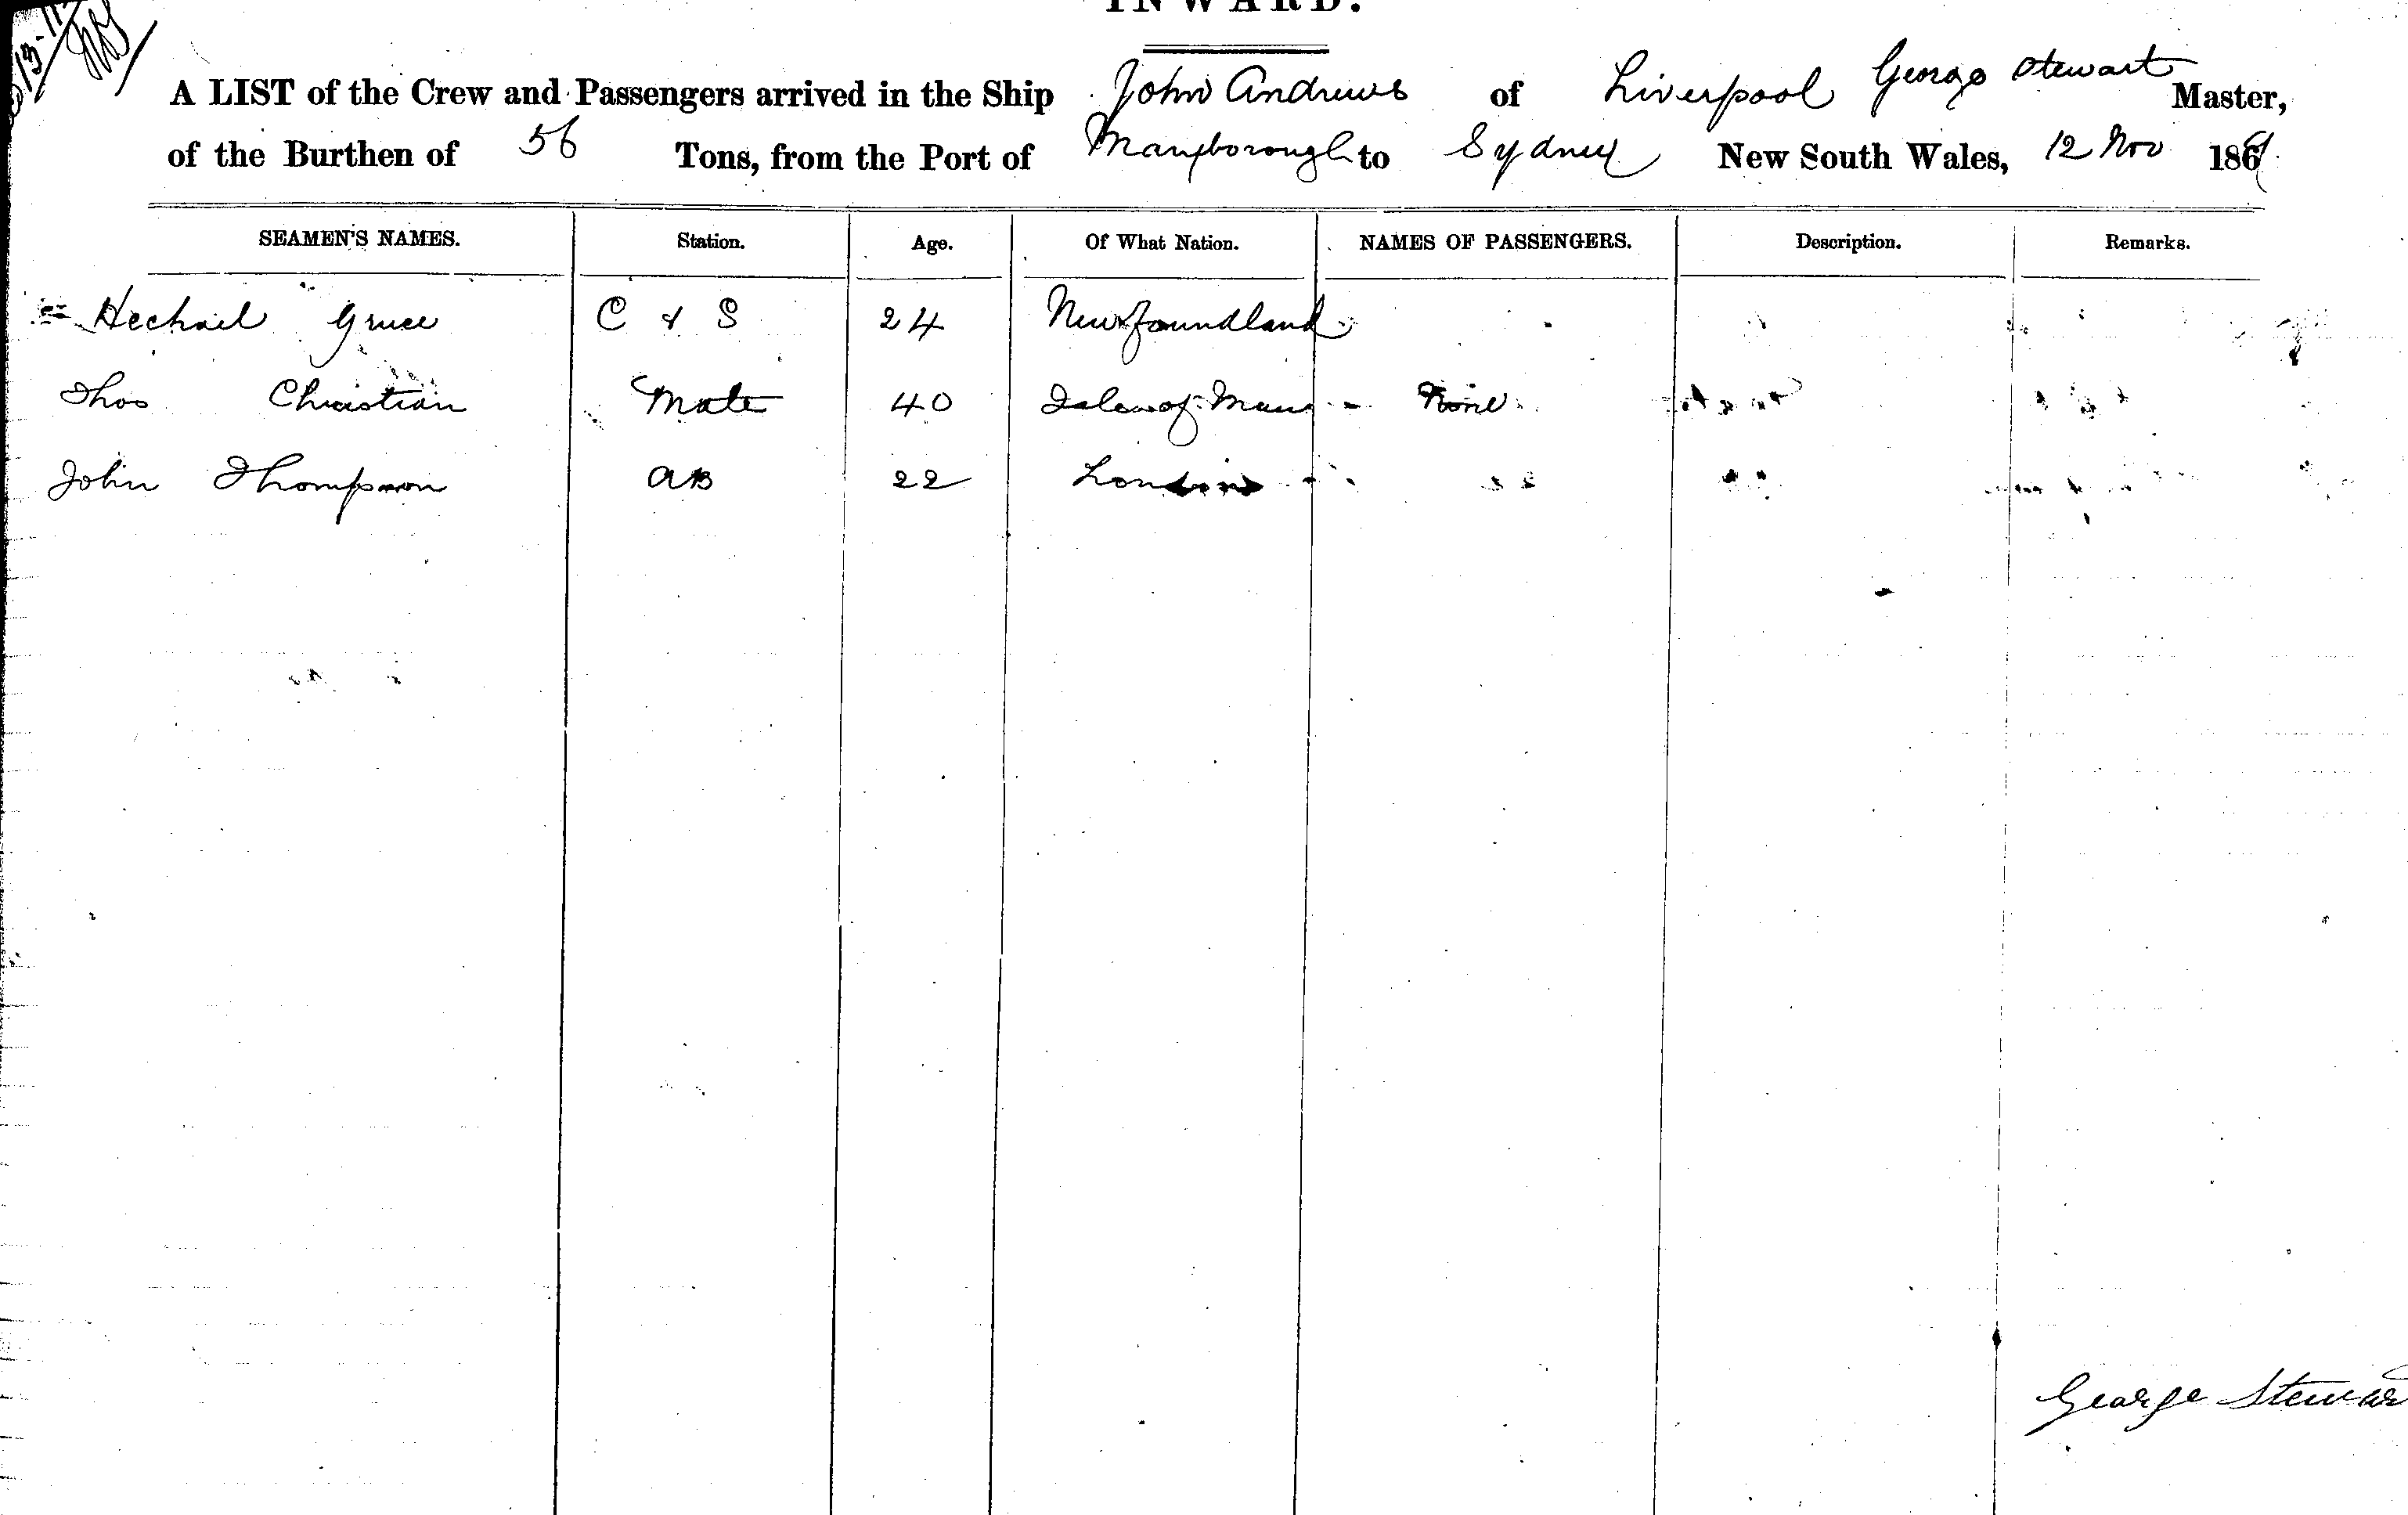 INWARD.
A LIST of the Crew and Passengers arrived in the Ship John Andrews of Liverpool George Stewart Master,
of the Burthen of 56 Tons, from the Port of Maryborough to Sydney New South Wales, 12 Nov 186
SEAMEN'S NAMES. Station. Age. Of What Nation. NAMES OF PASSENGERS. Description. Remarks.
C & S 24 Newfoundland
Thos Christian Mate 40 Isle of Man None
John Thompson AB 22 London
George Stewar